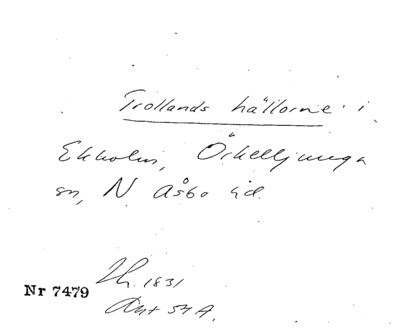 Trollands hällorne i
Ekholm, Örkelljunga
sn, N Åsbo hd.
Nr 7479
1831
54 A.